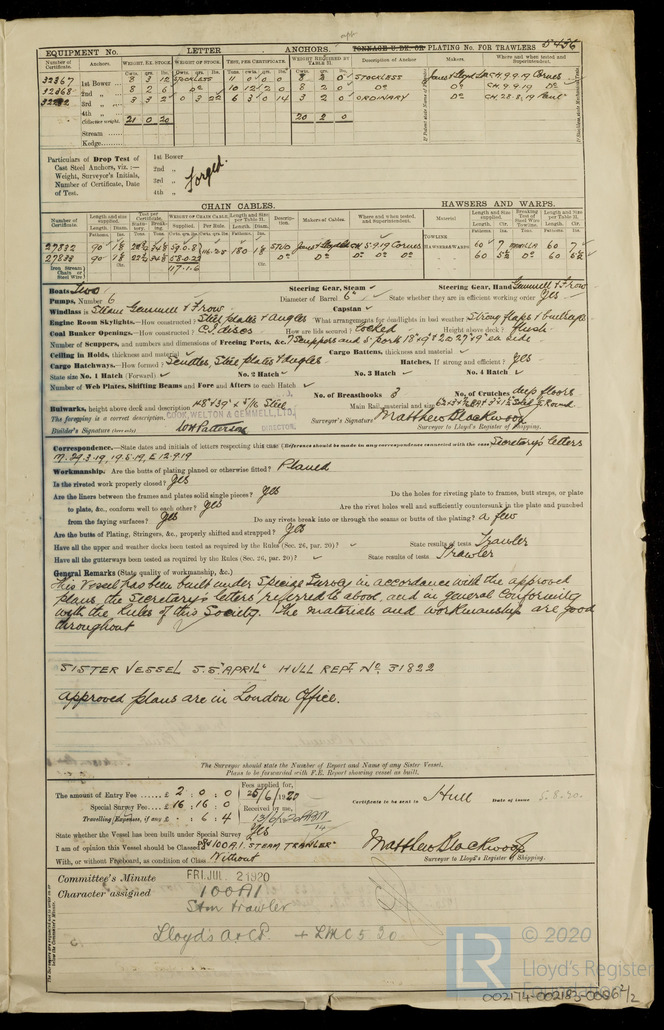 EQUIPMENT No. LETTER ANCHORS. TONNAGE U.DK. OR PLATING No. FOR TRAWLERS 5436
Number of Certificate. Anchors. WEIGHT, EX. STOCK. WEIGHT OF STOCK. TEST, PER CERTIFICATE. WEIGHT REQUIRED BY TABLE 31. Description of Anchor Makers. Where and when tested and Superintendent.
32367 1st Bower 8 3 12 STOCKLESS 11 0 0 0 8 2 0 STOCKLESS Jones & Lloyd Ld CH. 9.9.19 Cornes
32368 2nd " 8 2 6 Do 10 12 2 0 8 2 0 Do Do CH. 9.9.19 Do
3rd " 3 3 2 0 3 22 6 3 0 14 3 2 0 ORDINARY Do CH. 28.8.19 Paul
4th "
Collective weight 21 0 20 20 2 0
Stream
Kedge
Particulars of Drop Test of Cast Steel Anchors, viz.:— Weight, Surveyor's Initials, Number of Certificate, Date of Test.
1st Bower
2nd "
3rd "
4th "
Forged.
CHAIN CABLES. HAWSERS AND WARPS.
Number of Certificate. Length and size supplied. Test per Certificate. WEIGHT OF CHAIN CABLE. Length and Size per Table 31. Description. Makers of Cables. Where and when tested, and Superintendent. Material Length and size supplied. Breaking Test of Steel Wire Towline. Length and size per Table 31.
27832 90 59.0.8 180 STUD Jones & Lloyd Ld CH. 5.9.19 Cornes HAWSERS & WARPS 60 7 MANILLA 60 7
27833 90 58.0.23 Do Do Do Do 60 5½ Do 60
Iron Stream Chain or Steel Wire 117.1.6
TOWLINE
Boats Two Steering Gear, Steam Steering Gear, Hand Gemmell & Frow
Pumps, Number 6 Diameter of Barrel 6" State whether they are in efficient working order Yes
Windlass is Steam Gemmell & Frow Capstan
Engine Room Skylights.—How constructed? Steel plates & angles What arrangements for deadlights in bad weather Strong flaps & bullseyes
Coal Bunker Openings.—How constructed? C.I. discs How are lids secured? locked Height above deck? flush
Number of Scuppers, and numbers and dimensions of Freeing Ports, &c. 7 Scuppers and 5 ports 18"x9" & 2 @ 27"x9" ea side
Ceiling in Holds, thickness and material Cargo Battens, thickness and material
Cargo Hatchways.—How formed? Scuttles, Steel plates & angles Hatches, If strong and efficient? Yes
State size No. 1 Hatch (Forward) No. 2 Hatch No. 3 Hatch No. 4 Hatch
Number of Web Plates, Shifting Beams and Fore and Afters to each Hatch
No. of Breasthooks 3 No. of Crutches deep floors
Bulwarks, height above deck and description Steel Main Rail, material and size
The foregoing is a correct description. COOK, WELTON & GEMMELL, LTD. Surveyor's Signature Matthew Blackwood
Builder's Signature (here only) DIRECTOR. Surveyor to Lloyd's Register of Shipping.
Correspondence.—State dates and initials of letters respecting this case (Reference should be made in any correspondence connected with the case) Secretary's letters
M. 24.3.19, 19.5.19, E 12.9.19
Workmanship. Are the butts of plating planed or otherwise fitted? Planed
Is the riveted work properly closed? Yes
Are the liners between the frames and plates solid single pieces? Yes Do the holes for riveting plate to frames, butt straps, or plate
to plate, &c., conform well to each other? Yes Are the rivet holes well and sufficiently countersunk in the plate and punched
from the faying surfaces? Yes Do any rivets break into or through the seams or butts of the plating? a few
Are the butts of Plating, Stringers, &c., properly shifted and strapped? Yes
Have all the upper and weather decks been tested as required by the Rules (Sec. 26, par. 20)? State results of tests Trawler
Have all the gutterways been tested as required by the Rules (Sec. 26, par. 20)? State results of tests Trawler
General Remarks (State quality of workmanship, &c.)
This Vessel has been built under Special Survey in accordance with the approved
plans, the Secretary's letters referred to above, and in general conformity
with the Rules of this Society. The materials and workmanship are good
throughout
SISTER VESSEL S.S. "APRIL" HULL REPT No 31822
approved plans are in London Office.
The Surveyor should state the Number of Report and Name of any Sister Vessel.
Plans to be forwarded with F.E. Report showing vessel as built.
The amount of Entry Fee £ 2 : 0 : 0 Fees applied for,
Special Survey Fee £ 16 : 16 : 0 25/6/1920 Certificate to be sent to Hull Date of issue 5.8.20.
Travelling Expenses, if any £ . : 6 : 4 Received by me,
State whether the Vessel has been built under Special Survey Yes
I am of opinion this Vessel should be Classed 100 A.1. STEAM TRAWLER"
With, or without Freeboard, as condition of Class Without
Matthew Blackwood
Surveyor to Lloyd's Register of Shipping.
Committee's Minute FRI. JUL. 2 1920
Character assigned 100A1
Stm trawler
Lloyd's A & CP. + LMC 5 20
© 2020
LR Lloyd's Register
002174-002183-0006 2/2